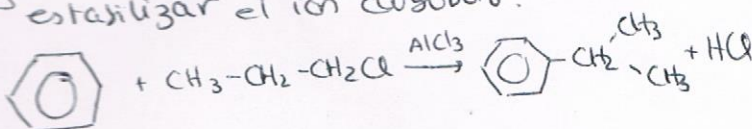 estabilizar el ión
+ CH3-CH2-CH2Cl AlCl3 → CH2 CH3 CH3 + HCl